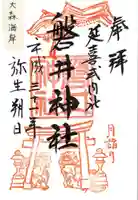 奉拝
月詣り
延喜式内社
磐井神社
平成三十一年
弥生朔日
大森海岸